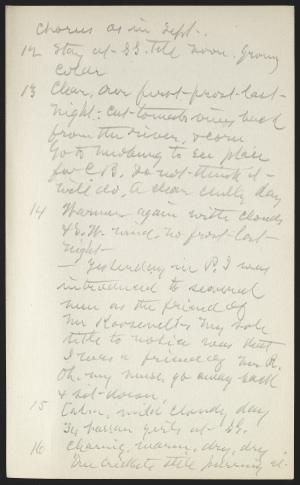 chorus as in Sept.
12 Stay at S.S. till noon. Growing
colder
13 Clear, our first frost last
night: cut tomato vines back
from the river, & corn
Go to Newburg to see place
for C B. Do not think it
will do, A clear chilly day
14 Warmer again with clouds
& S.W. wind, no frost last
night —
— Yesterday in P. I was
introduced to several
men as the friend of
Mr Roosevelt. My sole
title to notice was that
I was a friend of Mr R.
Oh, my muse, go away back
& sit down,
15 Calm, mild cloudy day
34 Vassar girls at S.S.
16 Clearing, warm, dry, dry
Tree crickets still purring at